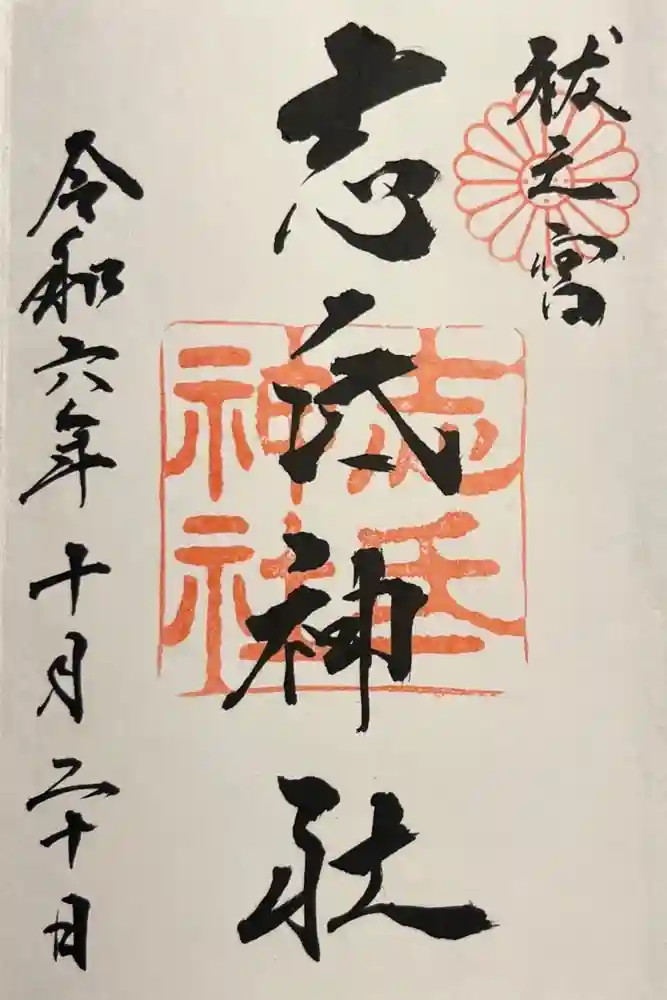 祓之宮
志氐神社
志氐
神社
令和六年十月二十日